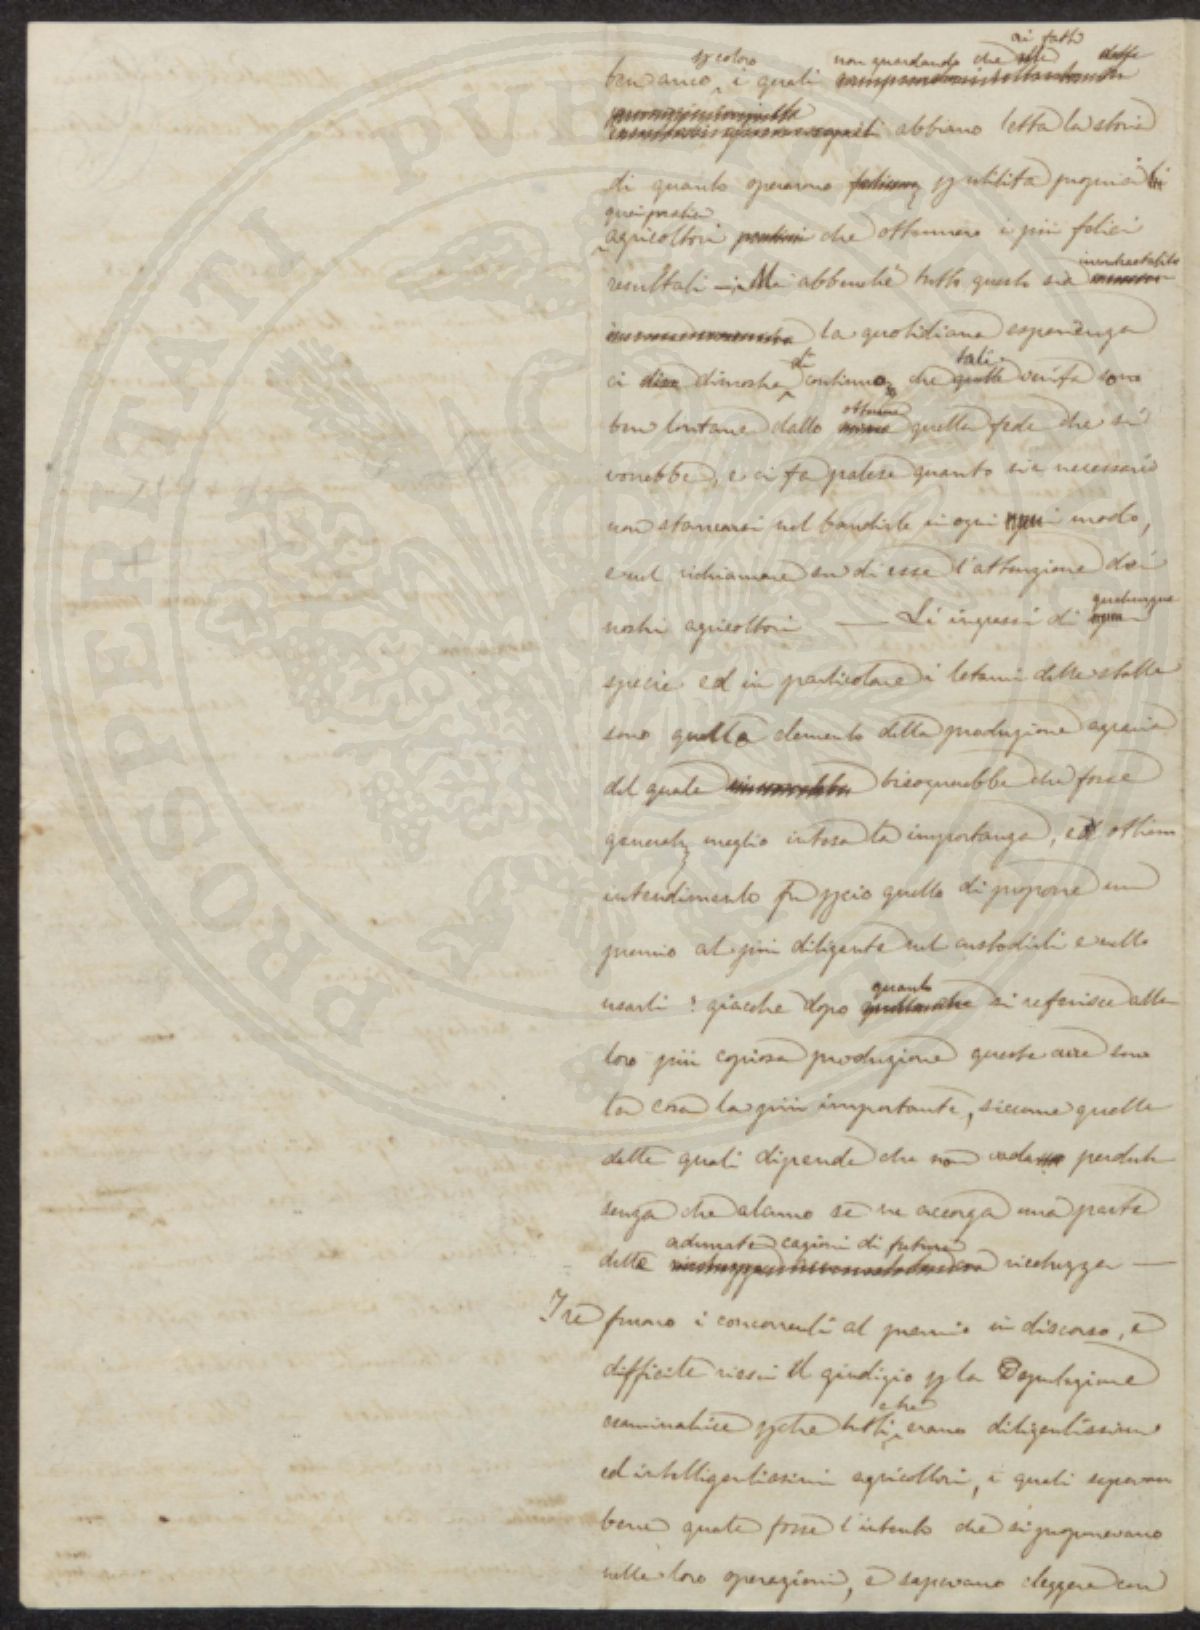 PROSPERITATI PUBLICAE AUGENDAE
ben anco, per coloro i quali non guardando che ai fatti
abbiano letta la storia
di quanto operarono per utilità propria
quei pratici
agricoltori che ottennero i più felici
resultati — Ma abbenchè tutto questo sia incontrastabile
la quotidiana esperienza
ci dimostra di continuo, che tali verità sono
ben lontane dallo ottenere quella fede che si
vorrebbe, e ci fa palese quanto sia necessario
non stancarsi nel bandirle in ogni modo,
e nel richiamare su di esse l'attenzione dei
nostri agricoltori — Li ingrassi di qualunque
specie ed in particolare i letami delle stalle
sono quello elemento della produzione agraria
del quale bisognerebbe che fosse
generalm. meglio intesa la importanza, ed ottimo
intendimento fu perciò quello di proporre un
premio al più diligente nel custodirli e nello
usarli: giacchè dopo quanto si referisce alla
loro più copiosa produzione queste cure sono
la cosa la più importante, siccome quelle
dalle quali dipende che non vada perduta
senza che alcuno se ne accorga una parte
delle adunate cagioni di futura ricchezza —
Tre furono i concorrenti al premio in discorso, e
difficile riescì il giudizio per la Deputazione
esaminatrice perchè tutti che erano diligentissimi
ed intelligentissimi agricoltori, i quali sapevano
bene quale fosse l'intento che si proponevano
nelle loro operazioni, e sapevano eleggere con